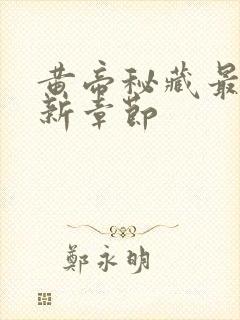 黄帝秘藏最
新章節
鄭永明